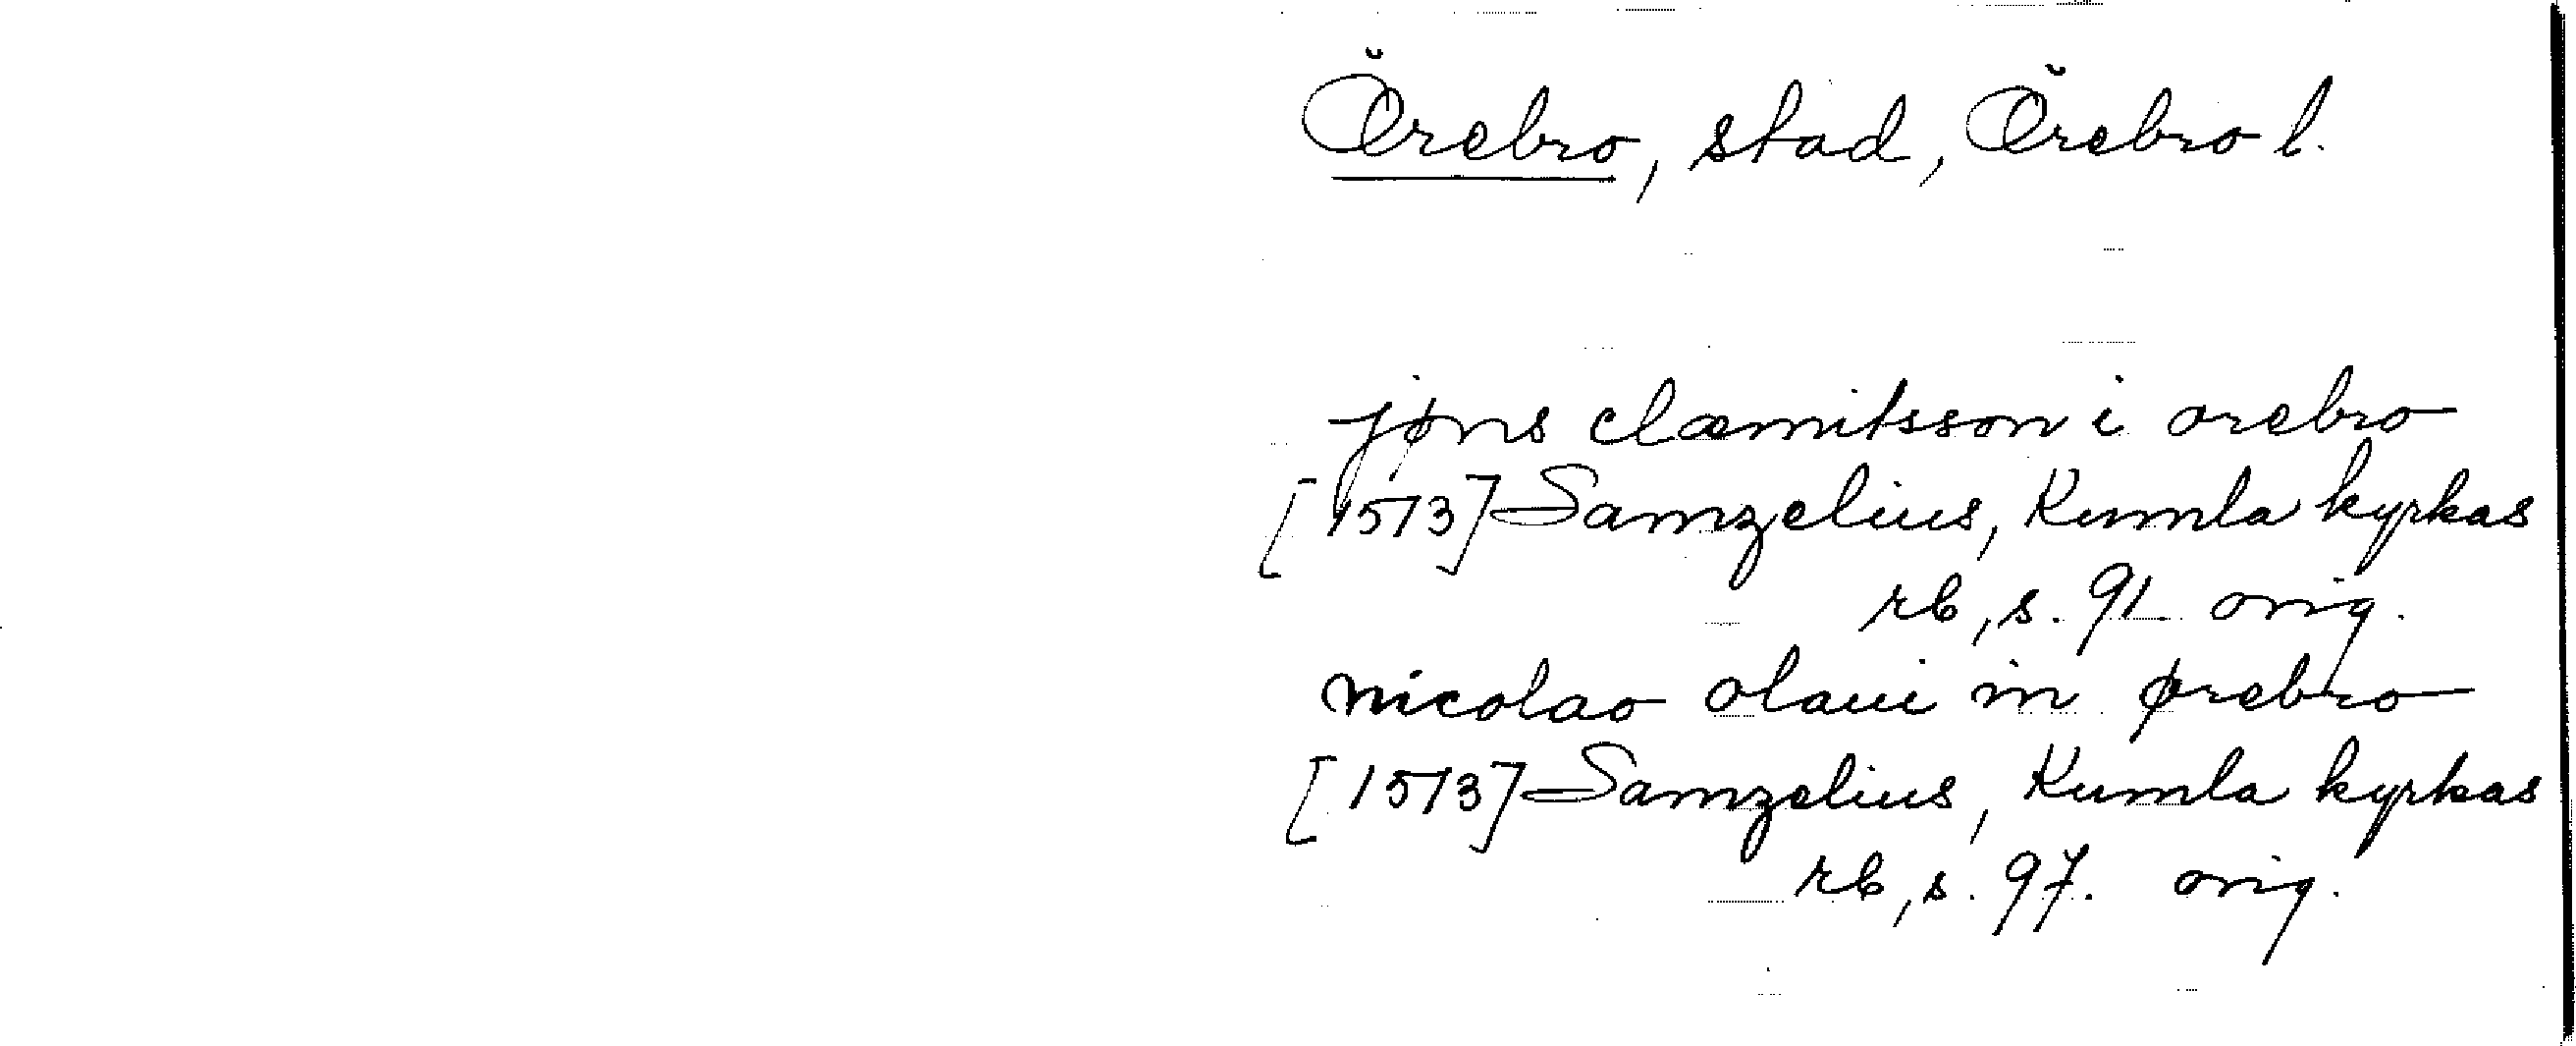 Örebro, stad, Örebro l.
jøns clæmitsson i orebro
[1513] Samzelius, Kumla kyrkas
rb, s. 91 orig.
nicolao olaui in ørebro
[1513] Samzelius, Kumla kyrkas
rb, s. 97. orig.